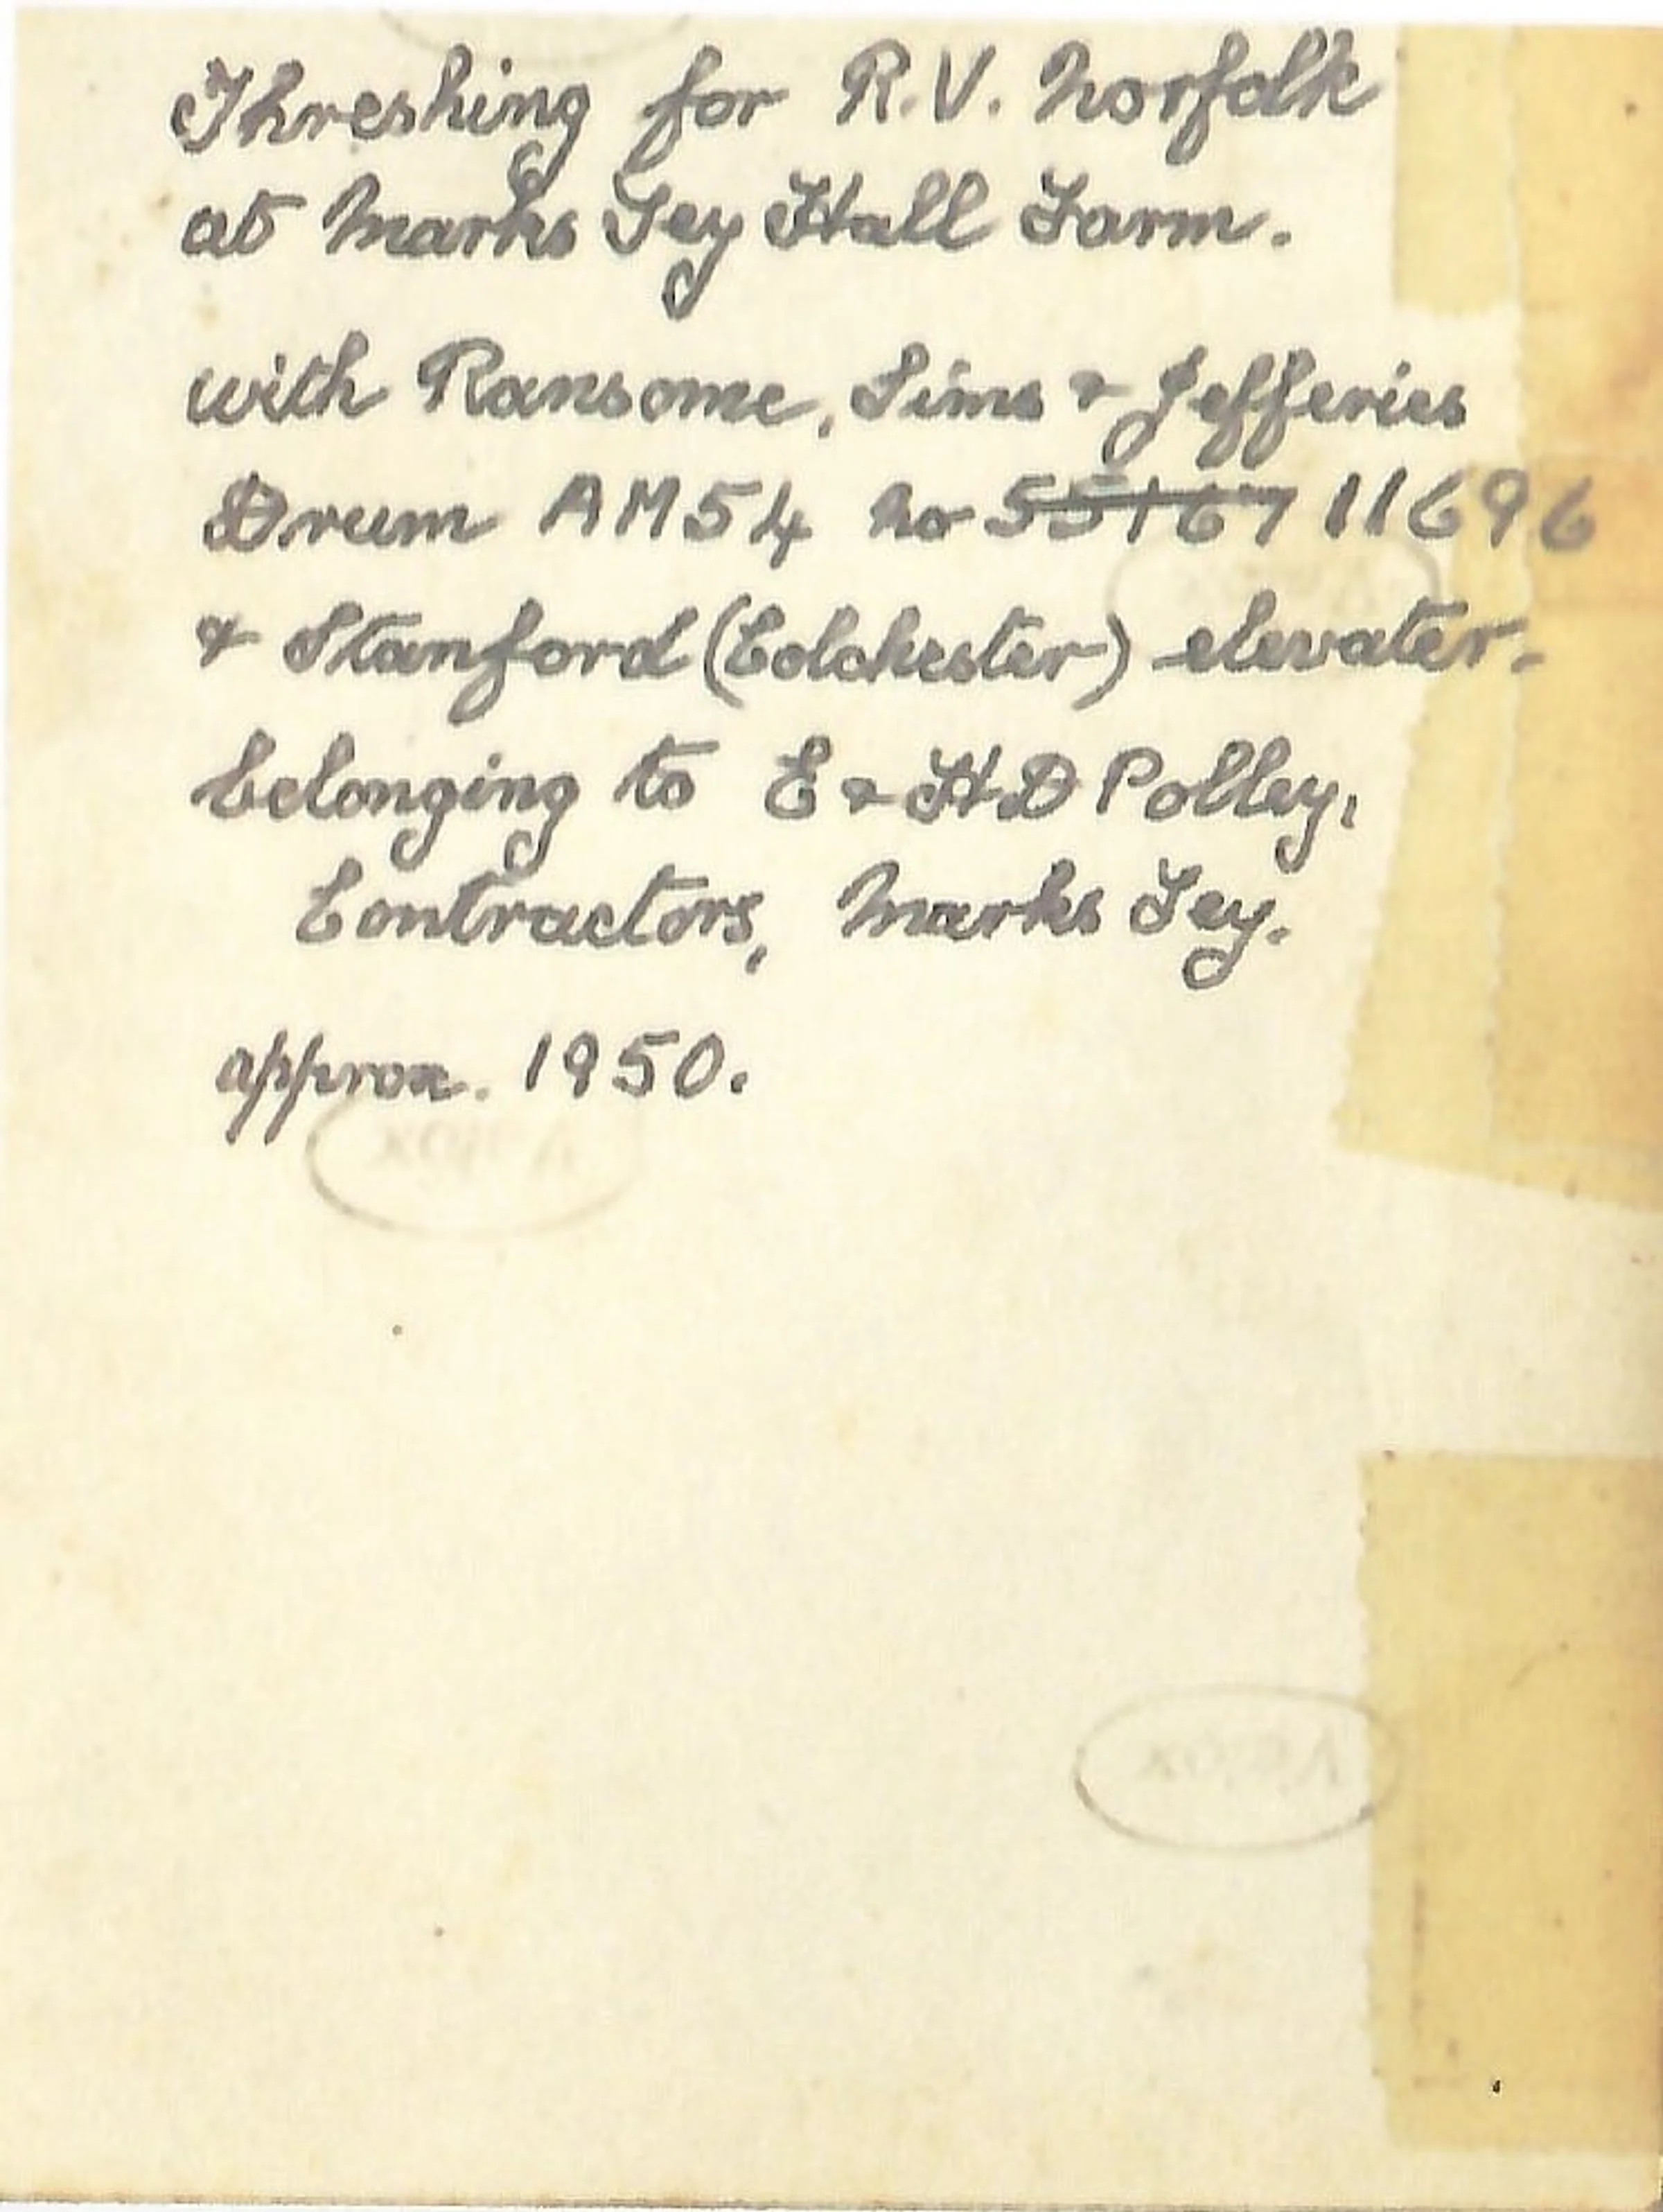 Threshing for R.V. Norfolk
at Marks Tey Hall Farm.
with Ransome, Sims & Jefferies
Drum AM54 No 55167 11696
& Stanford (Colchester) elevater.
belonging to E & H D Polley,
Contractors, Marks Tey.
approx. 1950.